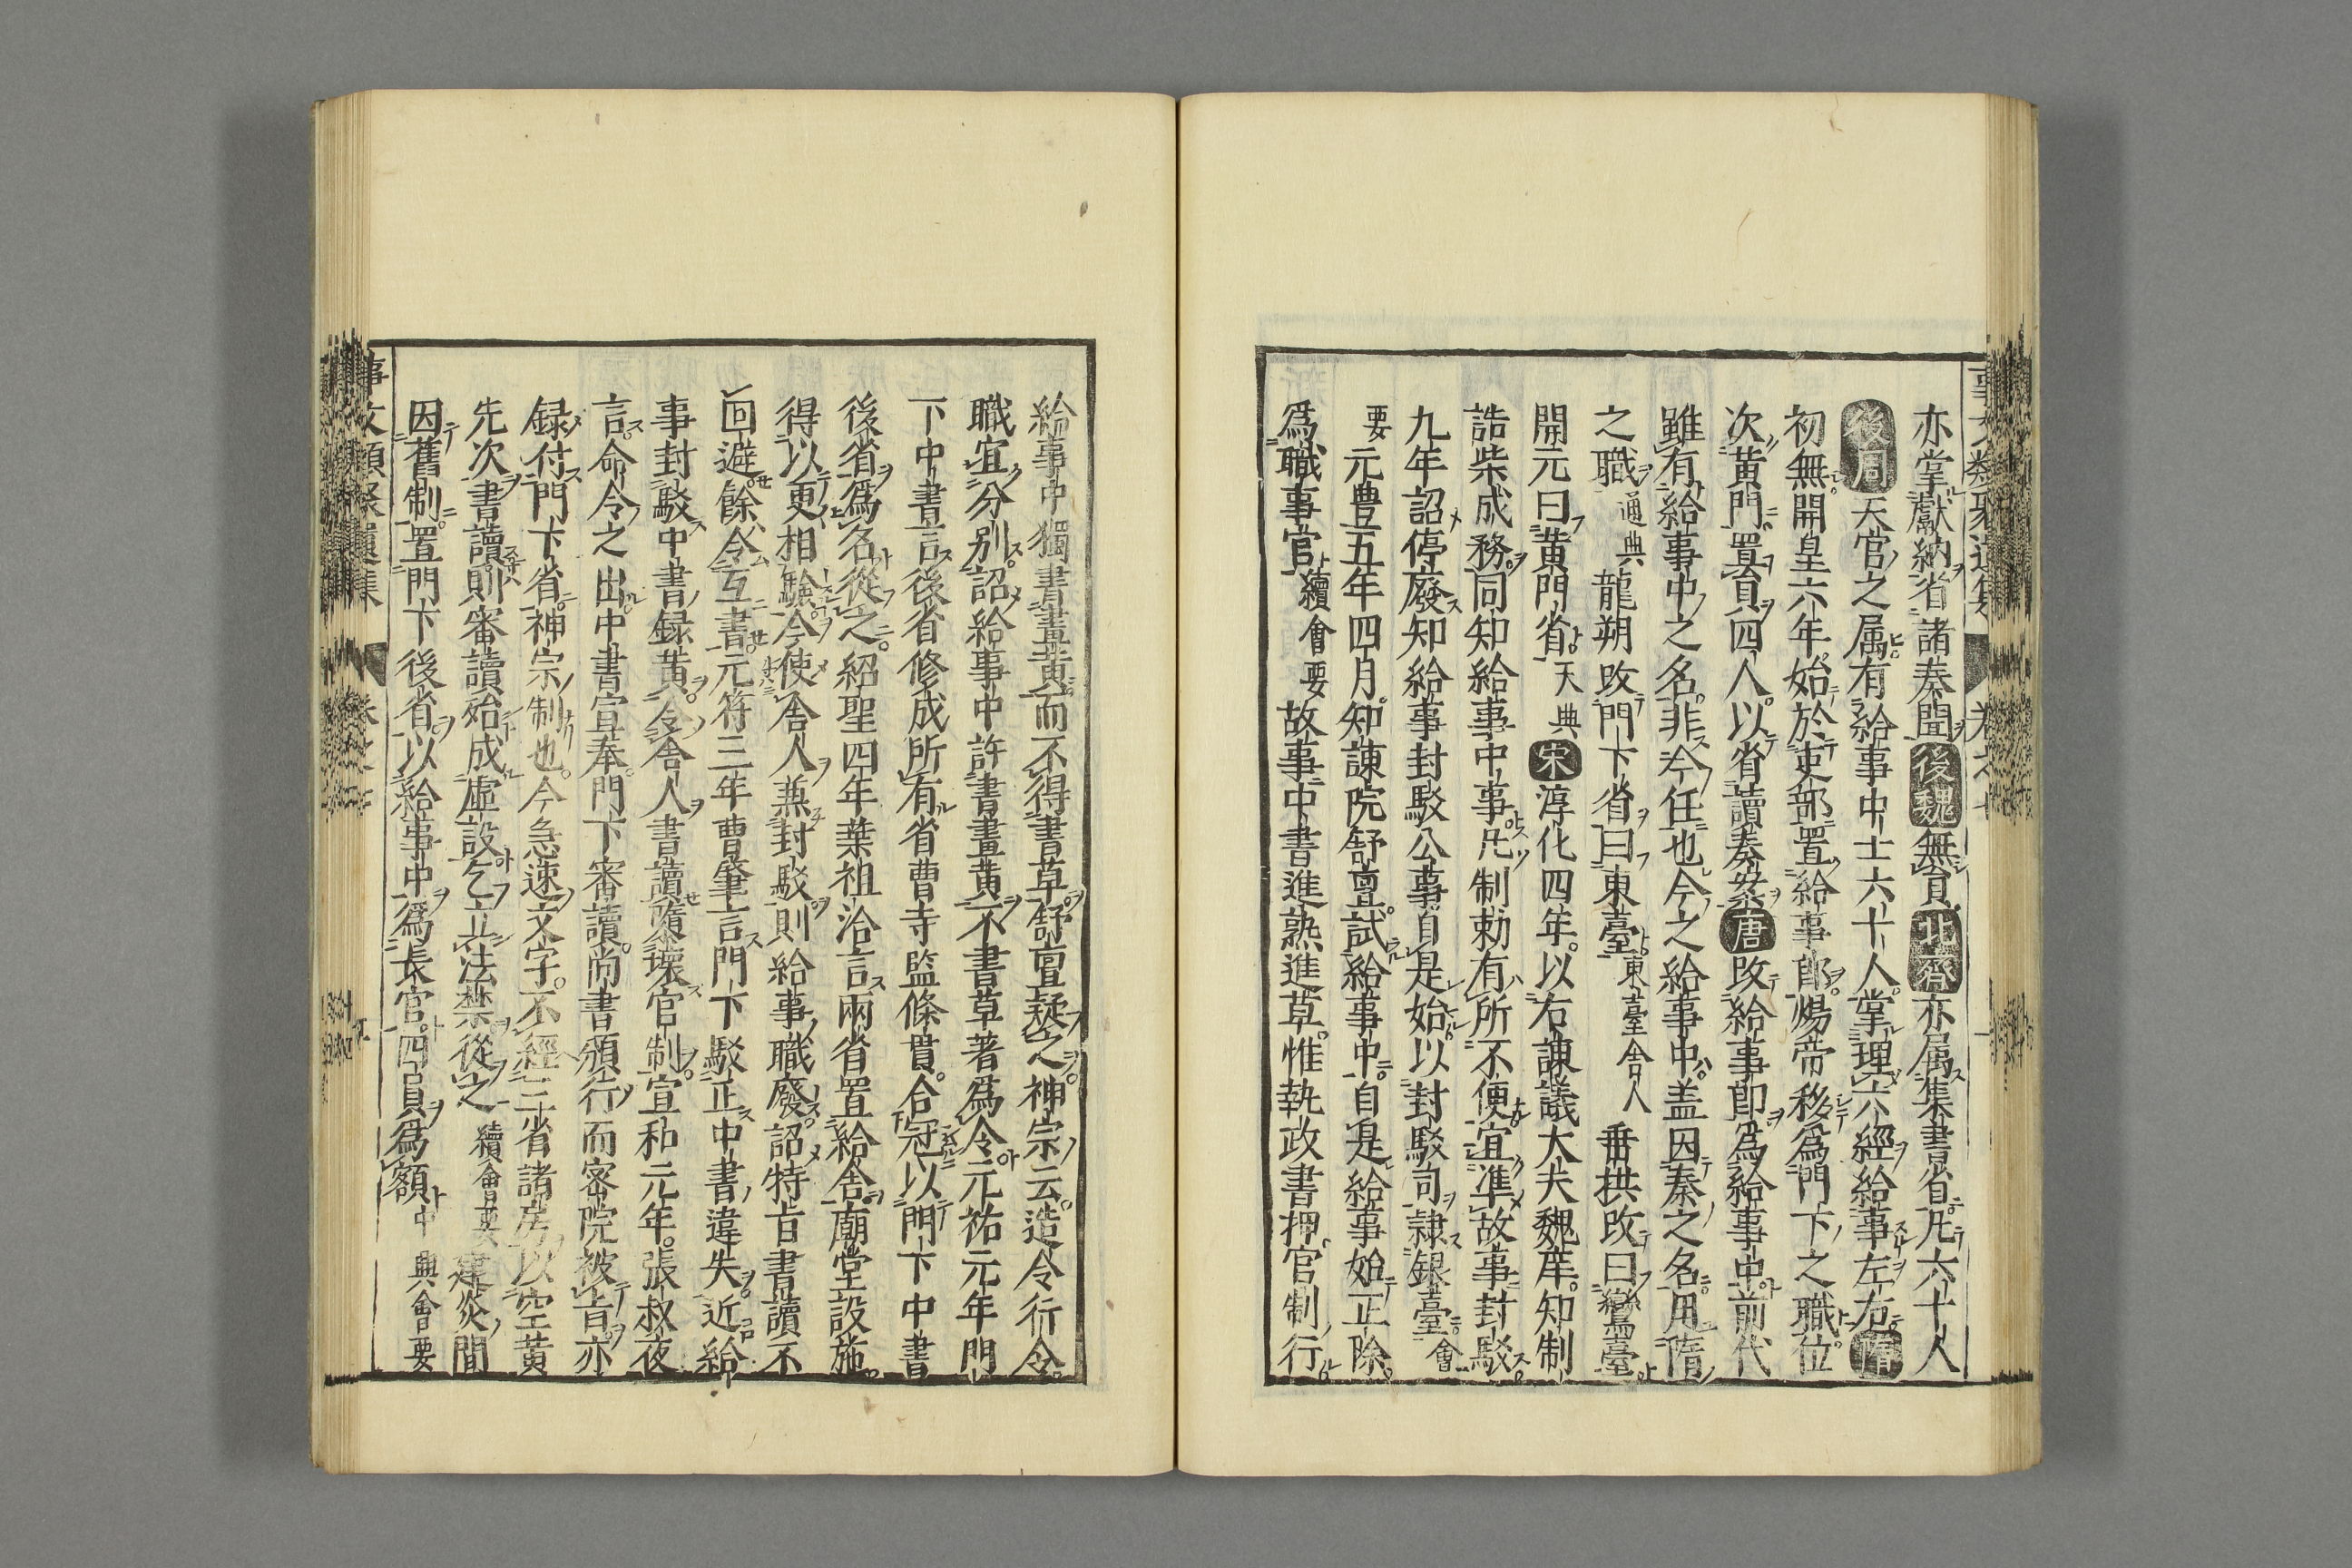 亦掌獻納省諸奏聞後魏無員北齊亦属集書省凡六十人
後周天官之属有給事中士六十人掌理六經給事左右隋
初無開皇六年始於吏部置給事郎煬帝移爲門下之職位
次黄門置員四人以省讀奏案唐改給事郎爲給事中前代
雖有給事中之名非今任也今之給事中盖因秦之名用隋
之職通典龍朔改門下省曰東臺東臺舎人垂拱改曰鸞臺
開元曰黄門省六典宋淳化四年以右諌議大夫魏庠知制
誥柴成務同知給事中事凡制勅有所不便宜準故事封駁
九年詔停廢知給事封駁公事自是始以封駁司隷銀臺會
要元豊五年四月知諌院舒亶試給事中自是給事始正除
爲職事官續會要故事中書進熟進草惟執政書押官制行
給事中獨書畫黄而不得書草舒亶疑之神宗云造令行令
職宜分别詔給事中許書畫黄不書草著爲令元祐元年門
下中書言後省修成所有省曹寺監條貫合冠以門下中書
後省爲名從之紹聖四年葉祖洽言兩省置給舎廟堂設施
得以更相驗今使舎人兼封駁則給事職廢詔特旨書讀不
回避餘令互書元符三年曹肇言門下駁正中書違失近給
事封駁中書録黄令舎人書讀隳壊官制宣和元年張叔夜
言命令之出中書宣奉門下審讀尚書頒行而密院被旨亦
録付門下省神宗制也今急速文字不經三省諸房以空黄
先次書讀則審讀殆成虚設乞立法禁從之續會要建炎間
因舊制置門下後省以給事中爲長官四員爲額中興會要
事文類聚遺集